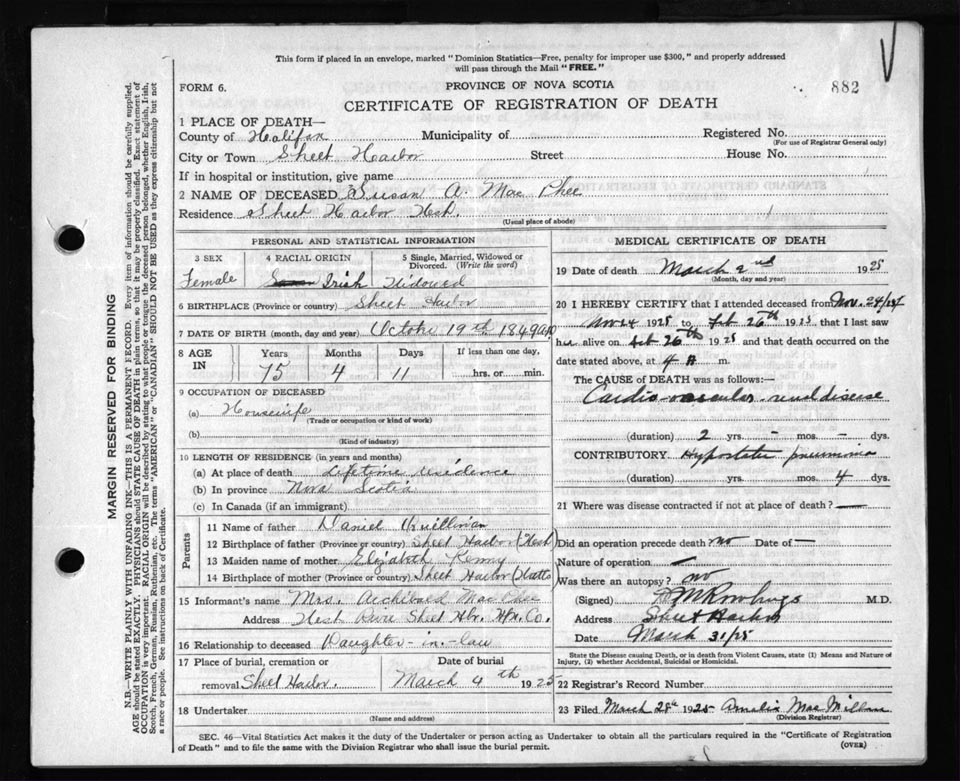 This form if placed in an envelope, marked "Dominion Statistics—Free, penalty for improper use $300," and properly addressed
will pass through the Mail "FREE."
FORM 6. PROVINCE OF NOVA SCOTIA 882
CERTIFICATE OF REGISTRATION OF DEATH
1 PLACE OF DEATH—
County of Halifax Municipality of Registered No.
(For use of Registrar General only)
City or Town Sheet Harbor Street House No.
If in hospital or institution, give name
2 NAME OF DECEASED Susan A. Mac Phee
Residence Sheet Harbor West.
(Usual place of abode)
PERSONAL AND STATISTICAL INFORMATION
3 SEX 4 RACIAL ORIGIN 5 Single, Married, Widowed or
Divorced. (Write the word)
Female Irish Widowed
6 BIRTHPLACE (Province or country) Sheet Harbor
7 DATE OF BIRTH (month, day and year) October 19th 1849
8 AGE IN Years Months Days If less than one day,
75 4 11 hrs. or min.
9 OCCUPATION OF DECEASED
(a) Housewife
(Trade or occupation or kind of work)
(b)
(Kind of industry)
10 LENGTH OF RESIDENCE (in years and months)
(a) At place of death Lifetime residence
(b) In province Nova Scotia
(c) In Canada (if an immigrant)
Parents
11 Name of father Daniel
12 Birthplace of father (Province or country) Sheet Harbor (West)
13 Maiden name of mother Elizabeth Kenny
14 Birthplace of mother (Province or country) Sheet Harbor
15 Informant's name Mrs. Archibald MacPhee
Address West River Sheet Hbr. Hfx. Co.
16 Relationship to deceased Daughter-in-law
17 Place of burial, cremation or Date of burial
removal Sheet Harbor. March 4th 1925
18 Undertaker
(Name and address)
MEDICAL CERTIFICATE OF DEATH
19 Date of death March 2nd 1925
(Month, day and year)
20 I HEREBY CERTIFY that I attended deceased from Nov. 24/
Nov 24 1925 to Feb 26th 1925, that I last saw
her alive on Feb 26th 1925 and that death occurred on the
date stated above, at 4 A m.
The CAUSE of DEATH was as follows:—
Cardio-vascular-renal disease
(duration) 2 yrs. – mos. – dys.
CONTRIBUTORY. Hypostatic pneumonia
(duration) yrs. mos. 4 dys.
21 Where was disease contracted if not at place of death?
Did an operation precede death? No Date of –
Nature of operation
Was there an autopsy? no
(Signed) M.D.
Address Sheet Harbor
Date March 31/25
State the Disease causing Death, or in death from Violent Causes, state (1) Means and Nature of
Injury, (2) whether Accidental, Suicidal or Homicidal.
22 Registrar's Record Number
23 Filed March 28th 1925 Amelia MacMillan
(Division Registrar)
SEC. 46—Vital Statistics Act makes it the duty of the Undertaker or person acting as Undertaker to obtain all the particulars required in the "Certificate of Registration
of Death" and to file the same with the Division Registrar who shall issue the burial permit. (OVER)
MARGIN RESERVED FOR BINDING
N.B.—WRITE PLAINLY WITH UNFADING INK—THIS IS A PERMANENT RECORD. Every item of information should be carefully supplied.
AGE should be stated EXACTLY. PHYSICIANS should STATE CAUSE OF DEATH in plain terms, so that it may be properly classified. Exact statement of
OCCUPATION is very important. RACIAL ORIGIN will be described by stating to what people or tongue the deceased person belonged, whether English, Irish,
Scotch, French, German, Russian, Ruthenian, etc. The terms "AMERICAN" or "CANADIAN" SHOULD NOT BE USED as they express citizenship but not
a race or people. See instructions on back of Certificate.